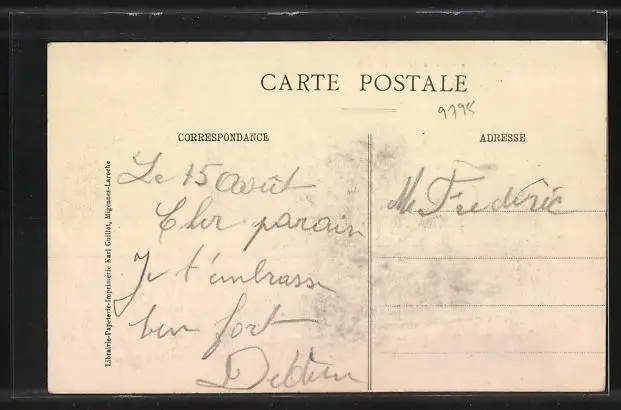 CARTE POSTALE
9795
CORRESPONDANCE
ADRESSE
Le 15 Août
Cher parain
Je t'embrasse
bien fort
Mr Frederic
Librairie-Papeterie-Imprimerie Karl Guillot, Migennes-Laroche